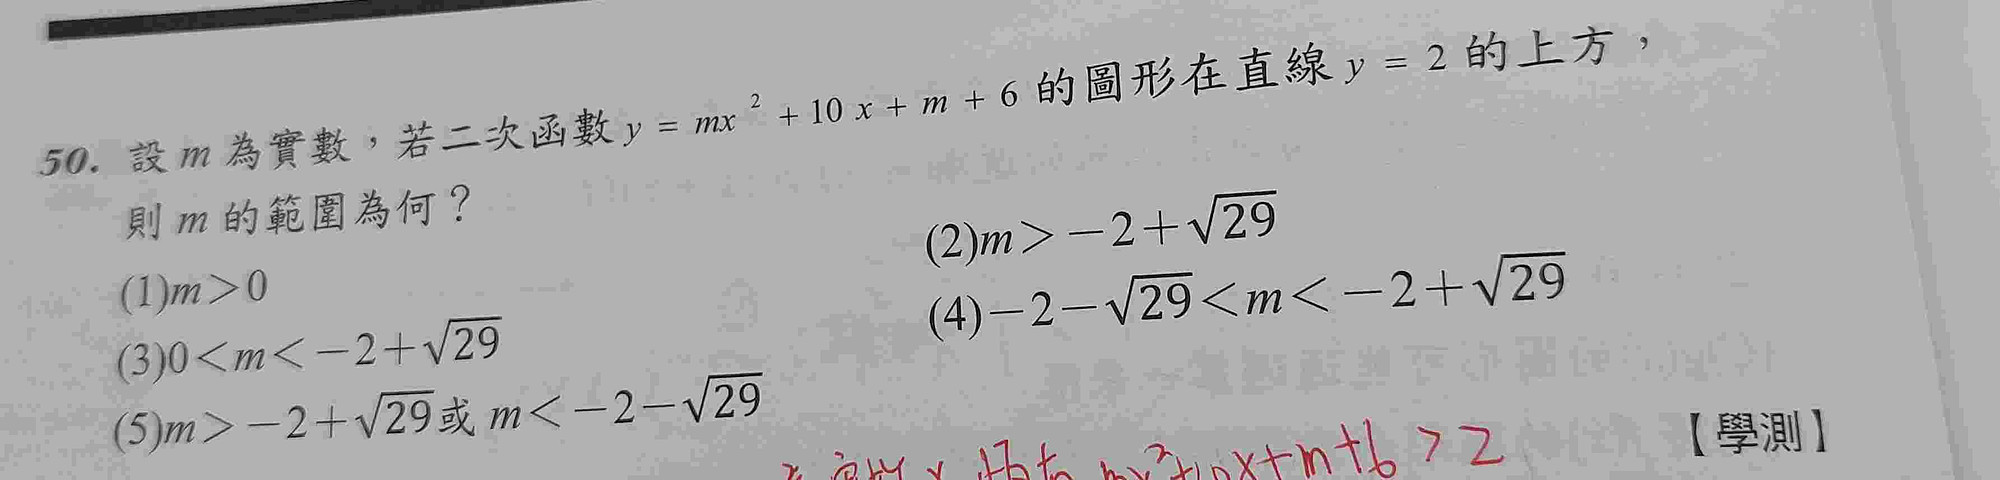 50. 設 m 為實數，若二次函數 y = mx² + 10 x + m + 6 的圖形在直線 y = 2 的上方，
則 m 的範圍為何？
(1)m＞0
(2)m＞－2＋√29
(3)0＜m＜－2＋√29
(4)－2－√29＜m＜－2＋√29
(5)m＞－2＋√29或 m＜－2－√29
【學測】
mx²+10x+m+6 > 2